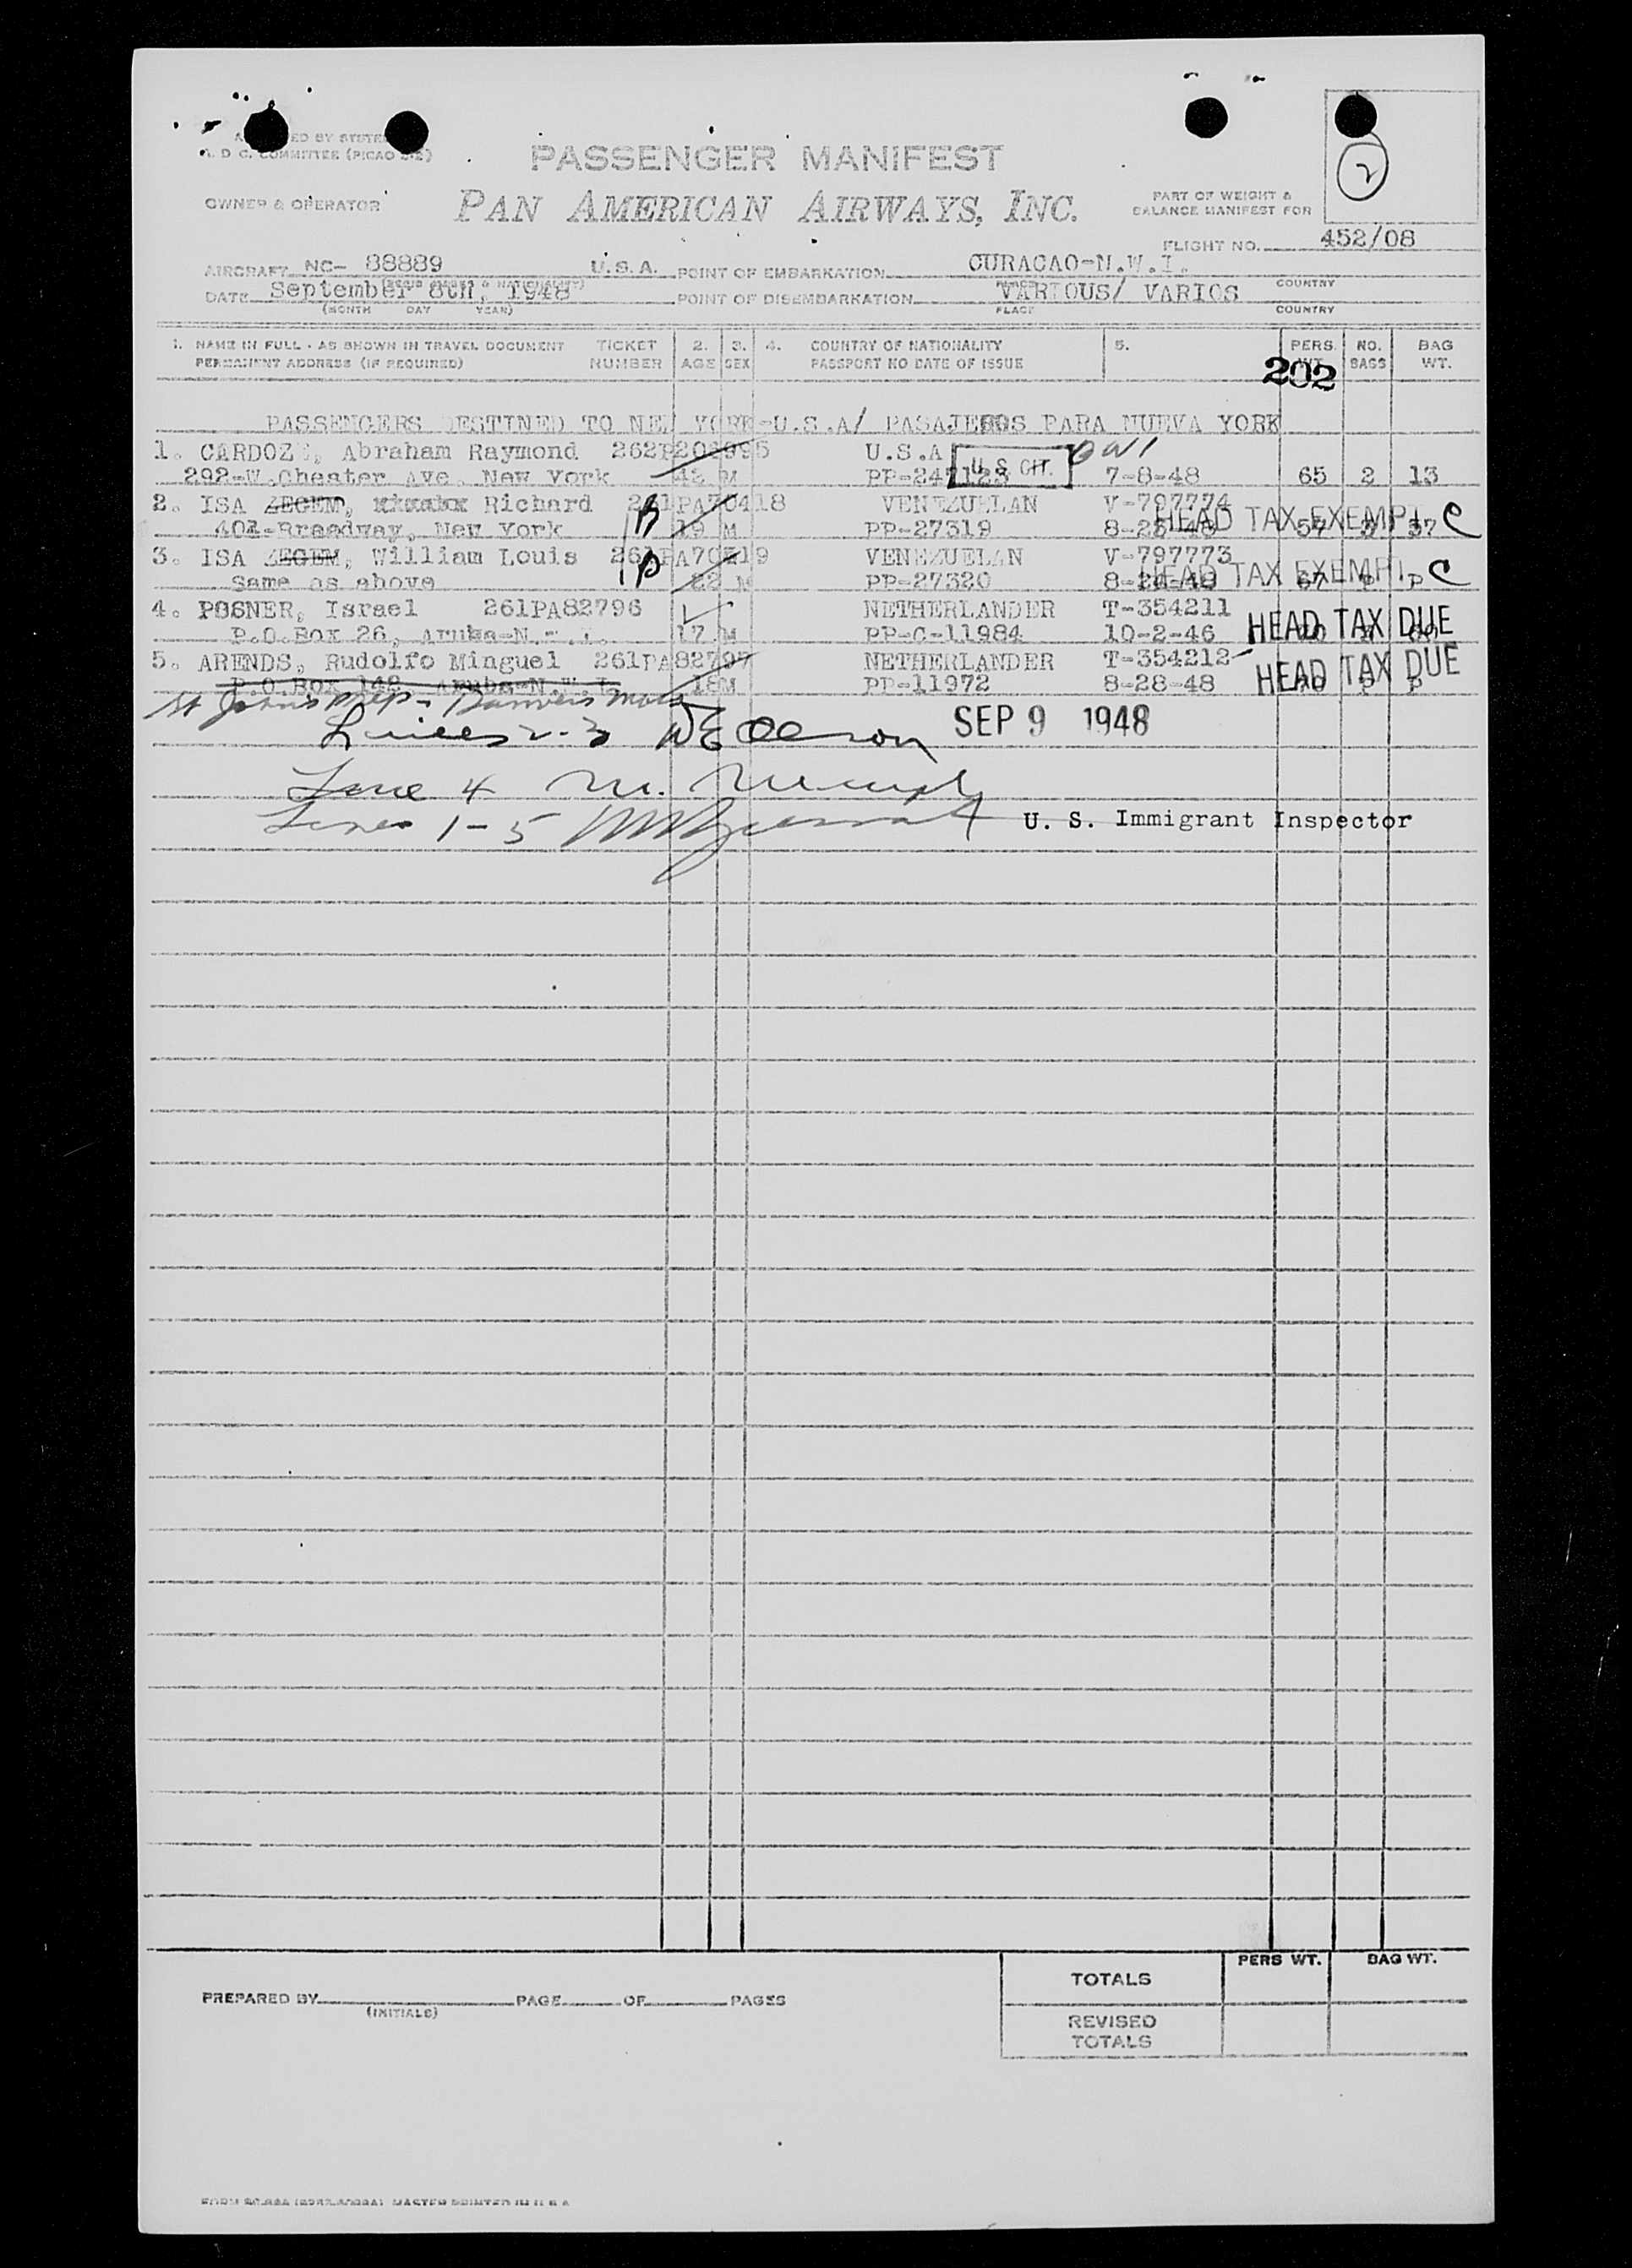 PASSENGER MANIFEST
2
OWNER & OPERATOR PAN AMERICAN AIRWAYS, INC. PART OF WEIGHT & BALANCE MANIFEST FOR
FLIGHT NO. 452/08
AIRCRAFT NC- 88889 U.S.A. POINT OF EMBARKATION CURACAO-N.W.I.
COUNTRY
DATE September 8th, 1948 POINT OF DISEMBARKATION VARIOUS/ VARIOS
(MONTH DAY YEAR) PLACE COUNTRY
1. NAME IN FULL - AS SHOWN IN TRAVEL DOCUMENT TICKET 2. 3. 4. COUNTRY OF NATIONALITY 5. PERS. NO. BAG
PERMANENT ADDRESS (IF REQUIRED) NUMBER AGE SEX PASSPORT NO DATE OF ISSUE WT. BAGS WT.
202
PASSENGERS DESTINED TO NEW YORK-U.S.A/ PASAJEROS PARA NUEVA YORK
1. Abraham Raymond U.S.A
292-W.Chester Ave. New York 42 M U.S. CIT. 7-8-48 65 2 13
2. ISA ZEGEM, Richard VENEZUELAN V-797774
Broadway, New York 19 M PP-27319 HEAD TAX EXEMPT C
3. ISA ZEGEM, William Louis VENEZUELAN V-797773
Same as above 22 M PP-27320 HEAD TAX EXEMPT C
4. POSNER, Israel 261PA82796 NETHERLANDER T-354211
P.O.Box 26, Aruba-N.W.I. 17 M PP-C-11984 10-2-46 HEAD TAX DUE
5. ARENDS, Rudolfo Minguel 261PA82797 NETHERLANDER T-354212
P.O.Box 142, Aruba-N.W.I. 18M PP-11972 8-28-48 HEAD TAX DUE
St John's Prep - Danvers Mass
Lines 2-3 WE Olson SEP 9 1948
Line 4 M.
Lines 1-5 U. S. Immigrant Inspector
PERS WT. BAG WT.
TOTALS
PREPARED BY PAGE OF PAGES
(INITIALS)
REVISED
TOTALS